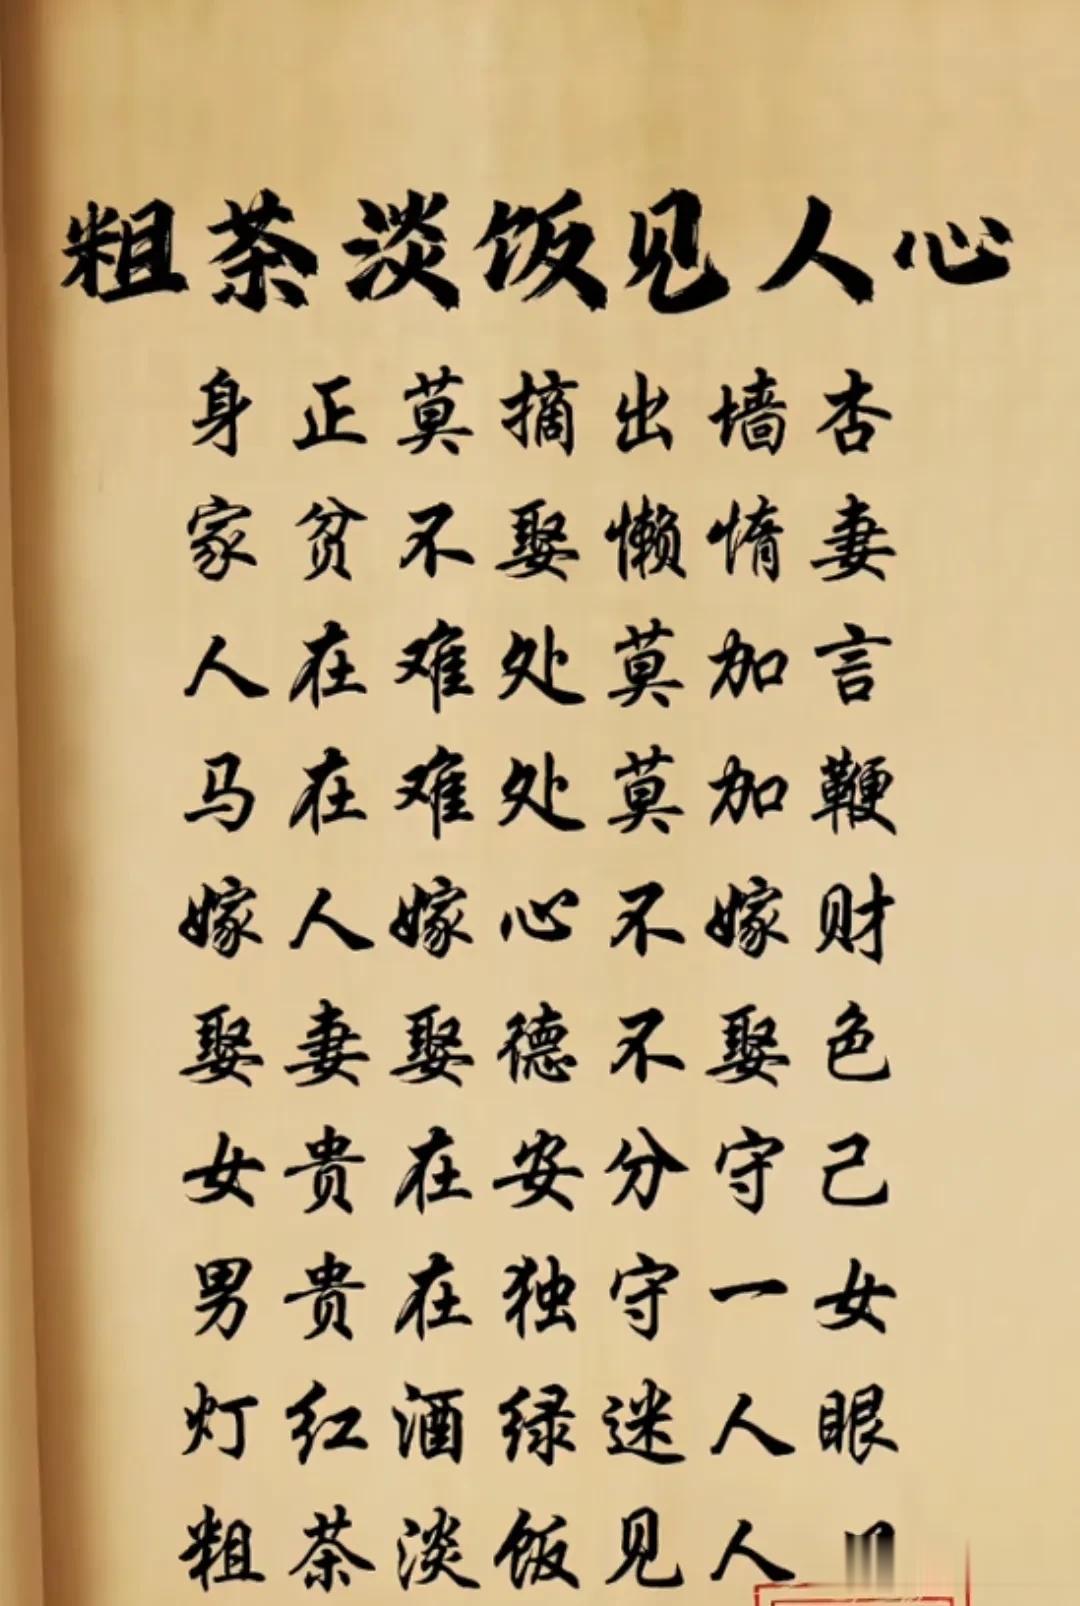 粗茶淡饭见人心
身正莫摘出墙杏
家贫不娶懒惰妻
人在难处莫加言
马在难处莫加鞭
嫁人嫁心不嫁财
娶妻娶德不娶色
女贵在安分守己
男贵在独守一女
灯红酒绿迷人眼
粗茶淡饭见人